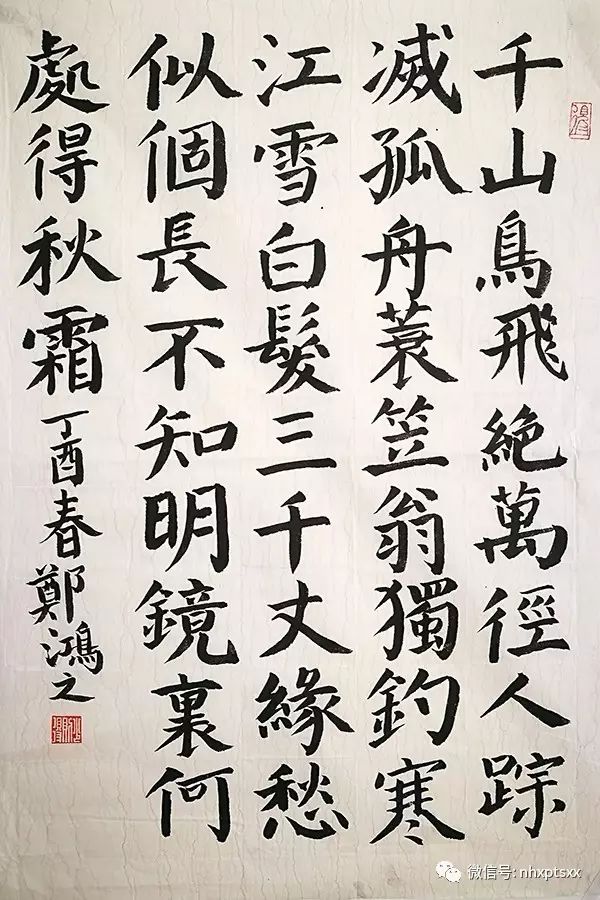 千山鳥飛絕萬徑人踪
滅孤舟蓑笠翁獨釣寒
江雪白髮三千丈緣愁
似個長不知明鏡裏何
處得秋霜丁酉春鄭鴻之
微信号: nhxptsxx